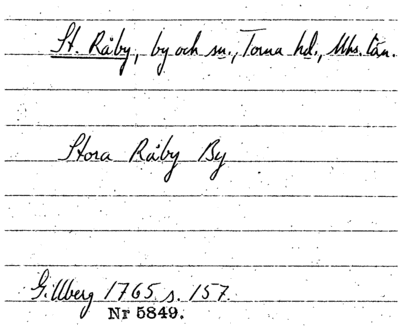 St. Råby, by och sn., Torna hd., Mhs. län.
Stora Råby By
Gillberg 1765 s. 157.
Nr 5849.